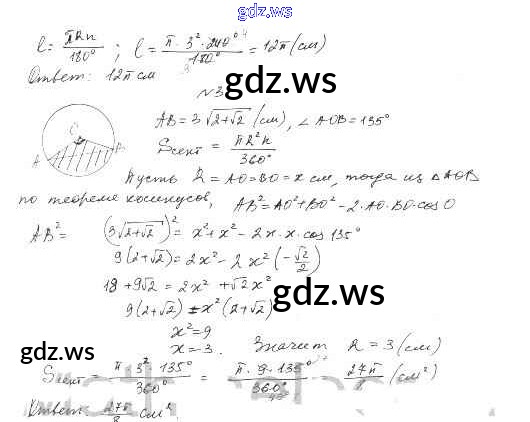 gdz.ws
l = πRn/180°; l = π·3²·240°/180° = 12π (см)
Ответ: 12π см
gdz.ws
№3
AB = 3√(2+√2) (см), ∠AOB = 135°
Sсект = πR²n/360°
Пусть R = AO = BO = x см, тогда из △AOB
по теореме косинусов, AB² = AO² + BO² - 2·AO·BO·cos O
AB² = (3√(2+√2))² = x² + x² - 2x·x·cos 135°
9(2+√2) = 2x² - 2x²(-√2/2)
18 + 9√2 = 2x² + √2x²
9(2+√2) = x²(2+√2)
gdz.ws
x² = 9
x = 3. Значит R = 3 (см)
gdz.ws
Sсект = π·3²·135°/360° = π·9·135°/360° = 27π/8 (см²)
Ответ: 27π/8 см².